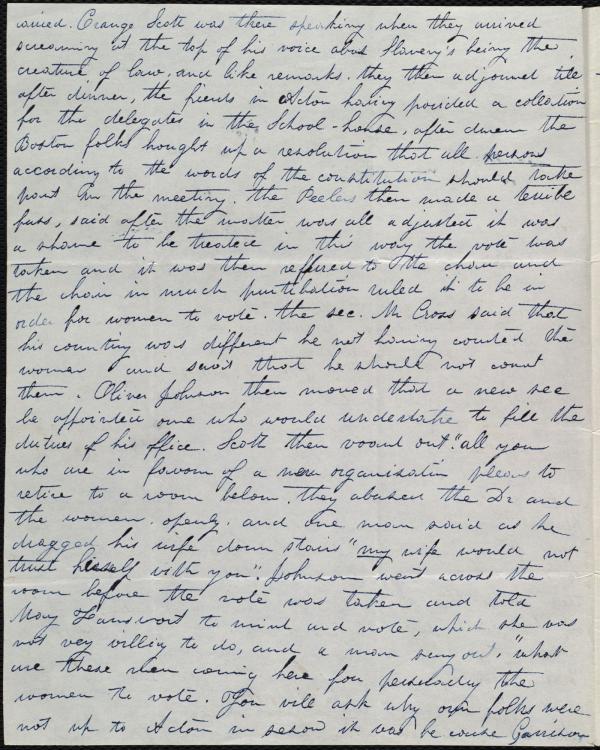 carried. Orange Scott was there speaking when they arrived
screaming at the top of his voice about Slavery's being the
creature of law, and like remarks. they then adjourned till
after dinner, the friends in Acton having provided a collation
for the delegates in the School-house, after dinner the
Boston folks brought up a resolution that all persons
according to the words of the constitution should take
part in the meeting. the Peelers then made a terrible
fuss, said after the matter was all adjusted it was
a shame to be treated in this way the vote was
taken and it was then reffured to the chair and
the chair in much purtibation ruled it to be in
order for women to vote. the sec. Mr Cross said that
his counting was different he not having counted the
women and said that he should not count
them. Oliver Johnson then moved that a new sec
be appointed one who would undertake to fill the
duties of his office. Scott then roared out. "all you
who are in favour of a new organisation please to
retire to a room below. they abused the Dr and
the women. openly. and one man said as he
dragged his wife down stairs "my wife would not
trust herself with you". Johnson went across the
room before the vote was taken and told
Mary to mind and vote, which she was
not very willing to do, and a man sung out, "what
are these men coming here for persuading the
women to vote. You will ask why our folks were
not up to Acton in season it was because Garrison